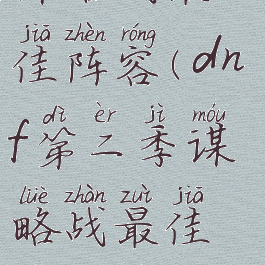 jiā zhèn róng
佳阵容(dn
dì èr jì móu
f第二季谋
lüè zhàn zuì jiā
略战最佳